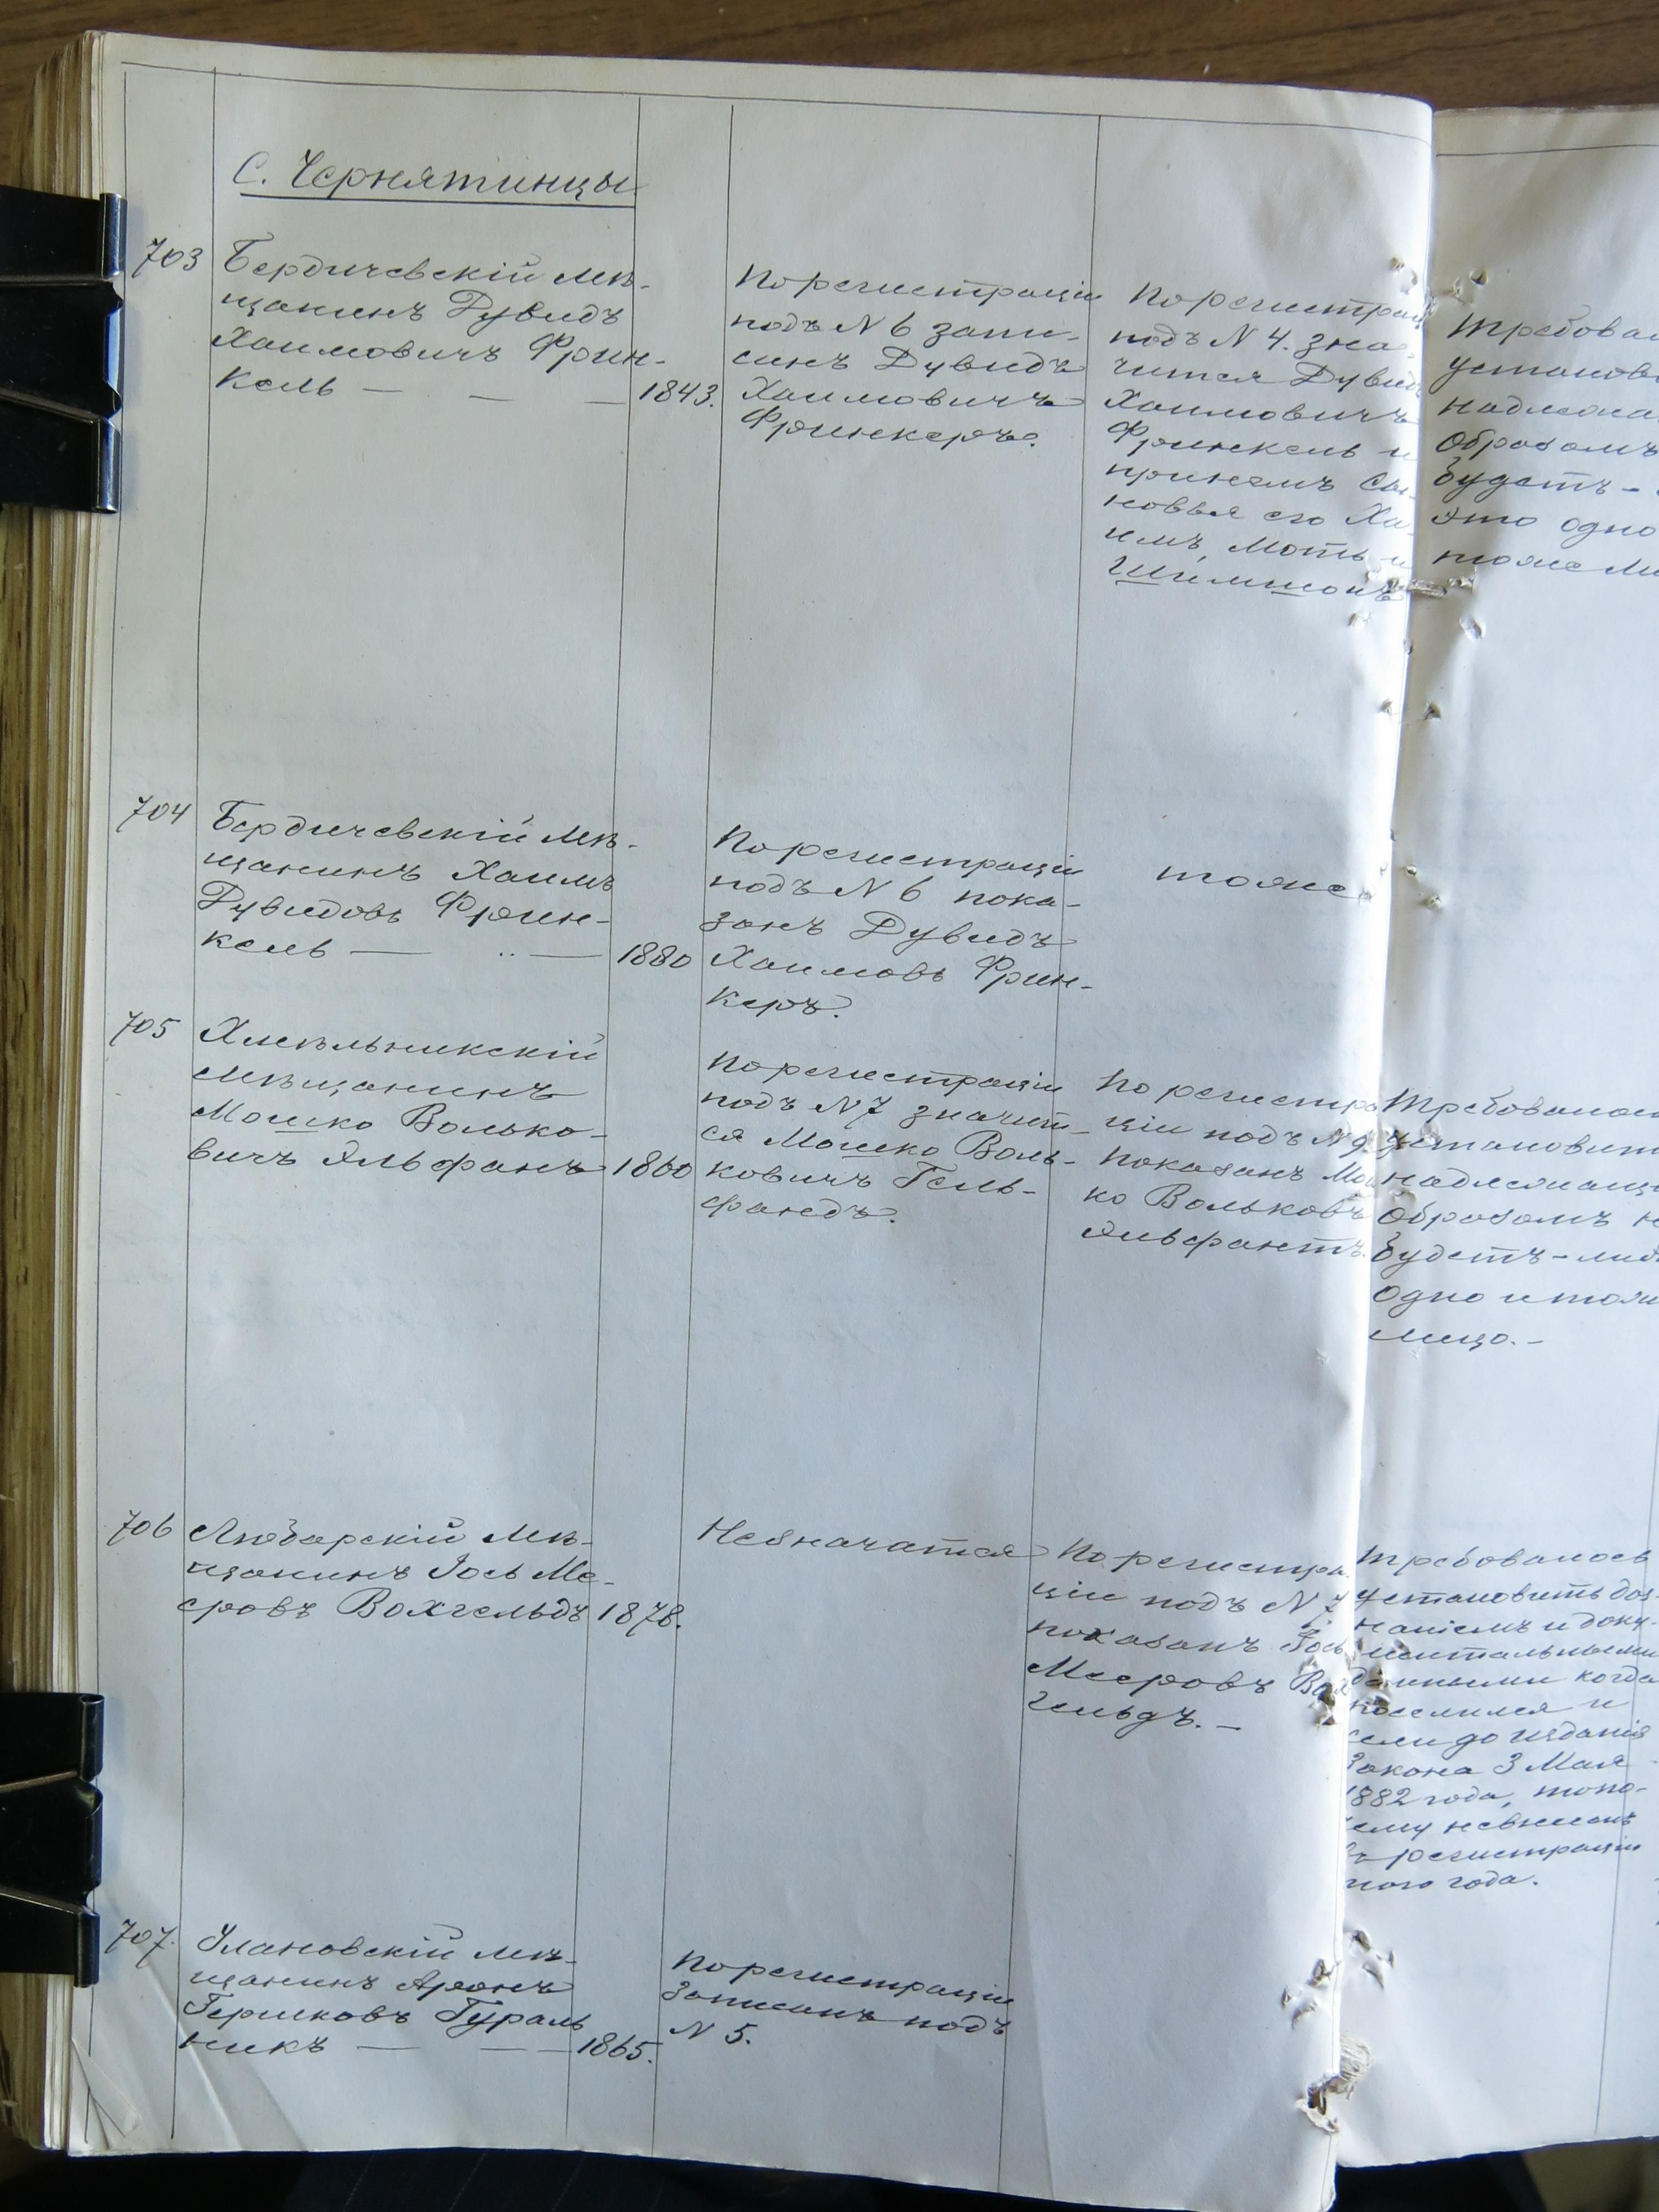 С. Чернятинцы
703
Бердичевскій мѣ-
щанинъ Дувидъ
Хаимовичъ Фрин-
кель — — — 1843.
По регистраціи
подъ N 6 запи-
санъ Дувидъ
Хаимовичъ
Фринкеръ.
По регистрац
подъ N 4. зна-
чится Дувидъ
Хаимовичъ
Фринкель и
при немъ сы-
новья его Ха
имъ, Моть и
Шимшонъ
Требовал
установи
надлежа
образомъ
будетъ-
это одно
тоже ли
704
Бердичевскій мѣ-
щанинъ Хаимъ
Дувидовъ Фрин-
кель — .. — 1880
По регистраціи
подъ N 6 пока-
занъ Дувидъ
Хаимовъ Фрин-
керъ.
тоже
705
Хмѣльникскій
мѣщанинъ
Мошко Волько-
вичъ Эльфанъ 1860
По регистраціи
подъ N 7 значит-
ся Мошко Воль-
ковичъ Гель-
фандъ.
По регистра
ціи подъ N 9
показанъ Мош
ко Вольковъ
Эльфантъ.
Требовалос
установит
надлежащ
образомъ н
будетъ-ли
одно и тож
лицо.-
706
Любарскій мѣ-
щанинъ Іось Ме-
еровъ Вохгельдъ 1878.
Незначатся
По регистра-
ціи подъ N 7
показанъ Іось
Мееровъ Вох
гильдъ. —
Требовалось
установить доз-
наніемъ и доку-
ментальными
данными когда
поселился и
если до изданія
Закона 3 Мая
1882 года, то по-
чему невнесенъ
въ регистрацію
того года.
707.
Улановскій мѣ-
щанинъ Аронъ
Гершковъ Гураль
никъ — — — 1865.
По регистраціи
Записанъ подъ
N 5.